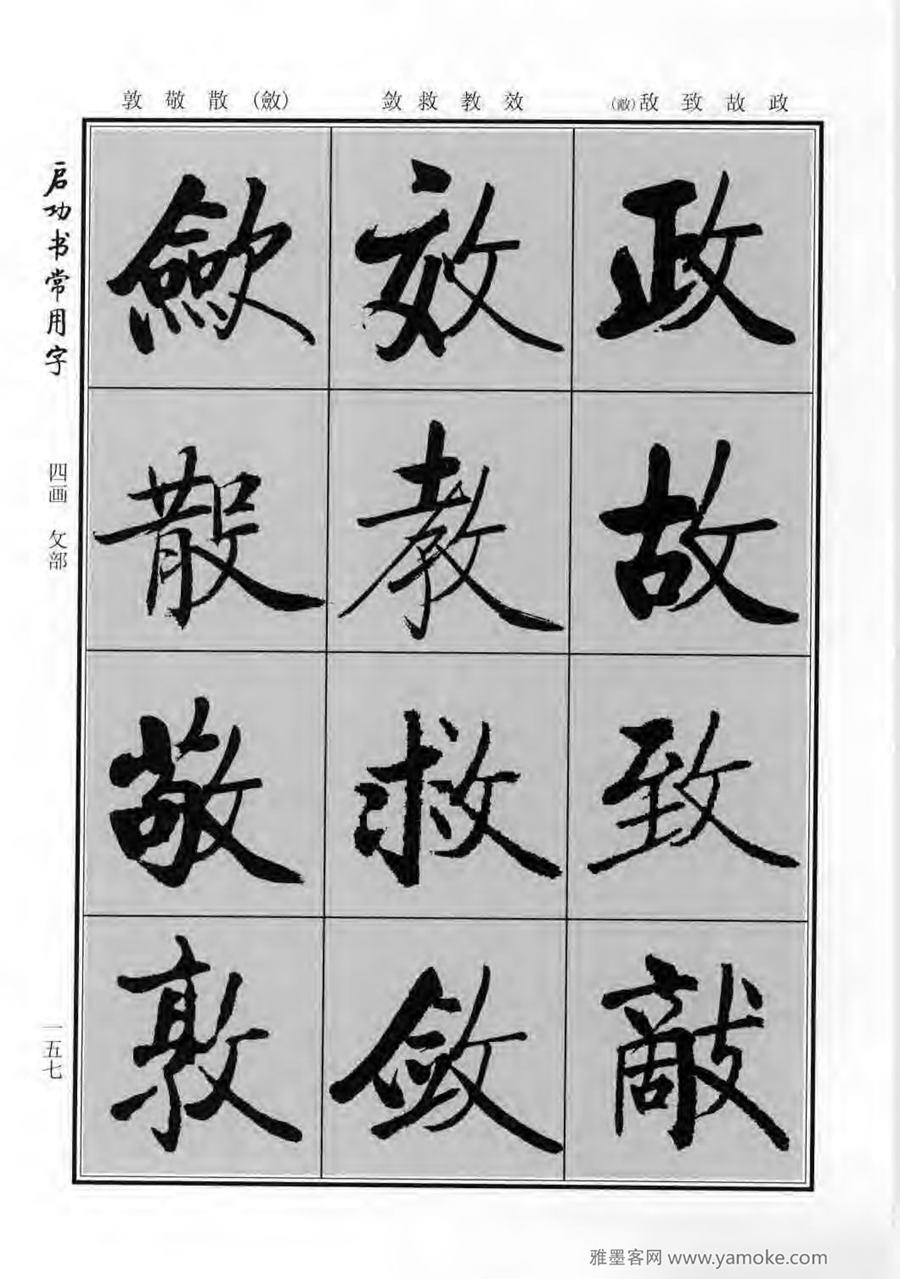 敦 敬 散 (斂) 敛 救 教 效 (敵)敌 致 故 政
启功书常用字
四画 攵部
一五七
政 故 致 敵
效 教 救 敛
斂 散 敬 敦
雅墨客网 www.yamoke.com